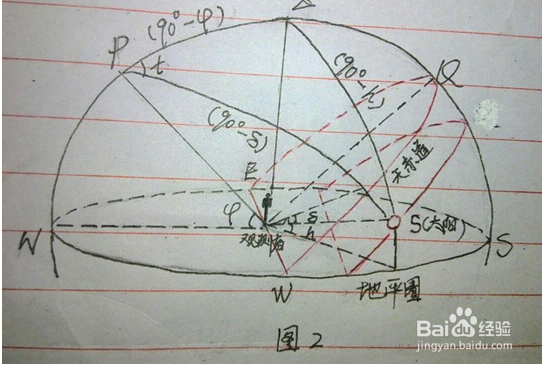 (90°-φ)
P
t
(90°-h)
Q
(90°-δ)
天赤道
E
φ
δ
h
S(太阳)
N
观测者
S
W
地平圈
图2
Baidu经验
jingyan.baidu.com